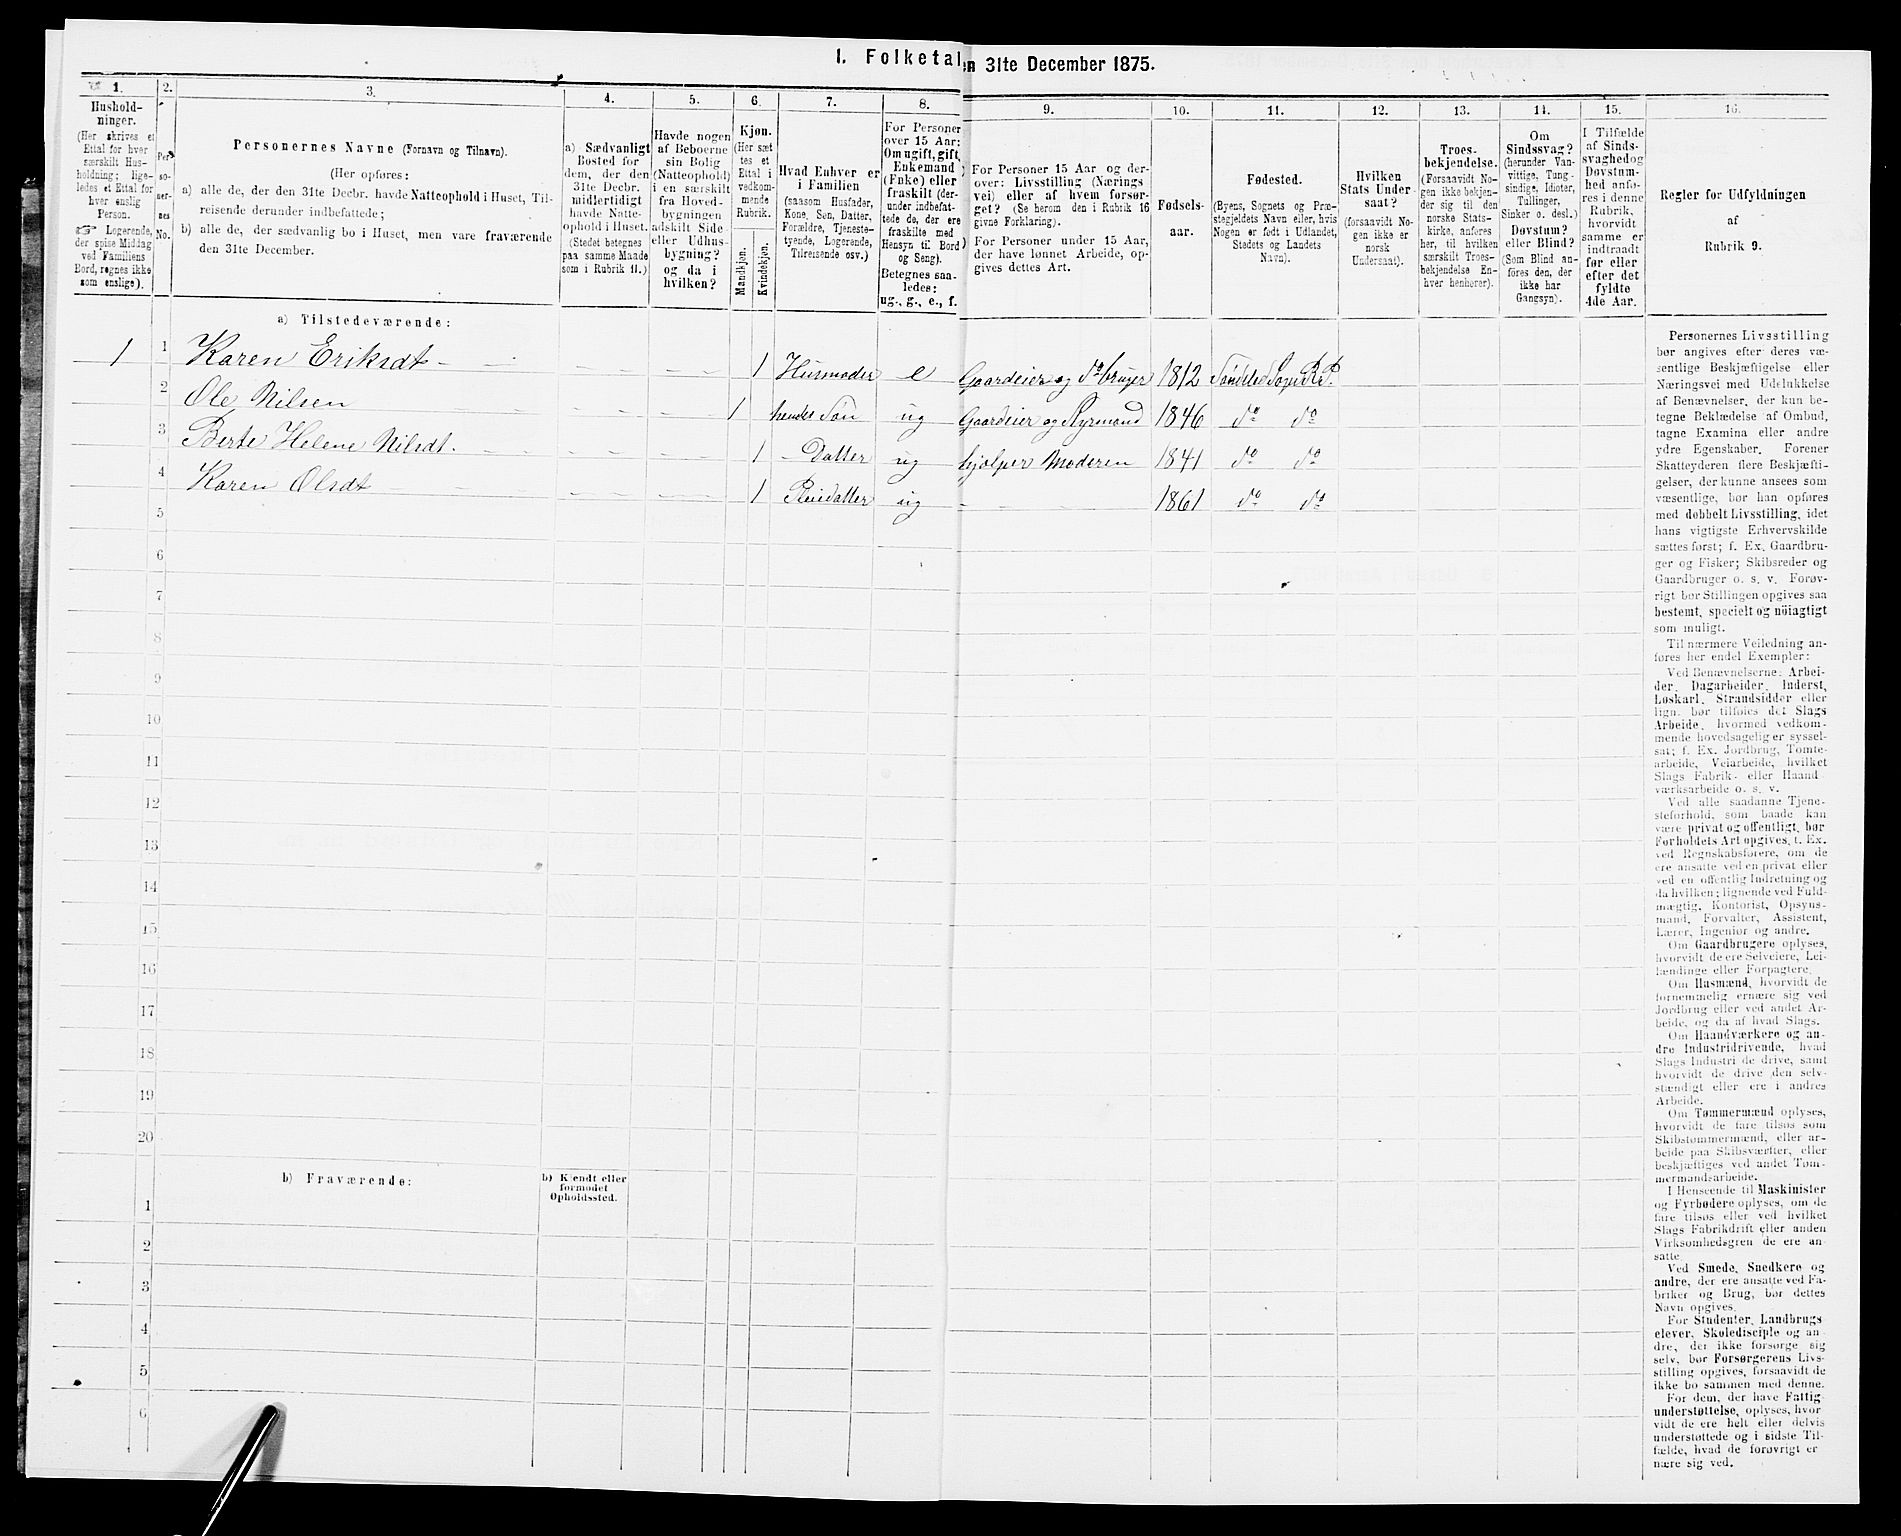 1. Folketal
en 31te December 1875.
1.
Hushold-
ninger.
(Her skrives et
Ettal for hver
særskilt Hus-
holdning; lige-
ledes et Ettal for
hver enslig
Person.
☞ Logerende,
der spise Middag
ved Familiens
Bord, regnes ikke
som enslige).
2.
Per-
so-
ner-
nes
No.
3.
Personernes Navne (Fornavn og Tilnavn).
(Her opføres:
a) alle de, der den 31te Decbr. havde Natteophold i Huset, Til-
reisende derunder indbefattede;
b) alle de, der sædvanlig bo i Huset, men vare fraværende
den 31te December.
4.
a) Sædvanligt
Bosted for
dem, der den
31te Decbr.
midlertidigt
havde Natte-
ophold i Huset.
(Stedet betegnes
paa samme Maade
som i Rubrik 11.)
5.
Havde nogen
af Beboerne
sin Bolig
(Natteophold)
i en særskilt
fra Hoved-
bygningen
adskilt Side
eller Udhus-
bygning?
og da i
hvilken?
6.
Kjøn.
(Her sæt-
tes et
Ettal i
vedkom-
mende
Rubrik.
Mandkjøn.
Kvindekjøn.
7.
Hvad Enhver er
i Familien
(saasom Husfader,
Kone, Søn, Datter,
Forældre, Tjeneste-
tyende, Logerende,
Tilreisende osv.)
8.
For Personer
over 15 Aar:
Om ugift, gift,
Enkemand
(Enke) eller
fraskilt (der-
under indbefat-
tede de, der ere
fraskilte med
Hensyn til Bord
og Seng).
Betegnes saa-
ledes:
ug., g., e., f.
9.
For Personer 15 Aar og der-
over: Livsstilling (Nærings
vei) eller af hvem forsør-
get? (Se herom den i Rubrik 16
givne Forklaring).
For Personer under 15 Aar,
der have lønnet Arbeide, op-
gives dettes Art.
10.
Fødsels-
aar.
11.
Fødested.
(Byens, Sognets og Præ-
stegjeldets Navn eller, hvis
Nogen er født i Udlandet,
Stedets og Landets
Navn).
12.
Hvilken
Stats Under-
saat?
(forsaavidt No-
gen ikke er
norsk
Undersaat).
13.
Troes-
bekjendelse.
(Forsaavidt No-
gen ikke bekjen-
der sig til den
norske Stats-
kirke, anføres
her, til hvilken
særskilt Troes-
bekjendelse En-
hver henhører).
14.
Om
Sindssvag?
(herunder Van-
vittige, Tung-
sindige, Idioter,
Tullinger,
Sinker o. desl.)
Døvstum?
eller Blind?
(Som Blind an-
føres den, der
ikke har
Gangsyn).
15.
I Tilfælde
af Sinds-
svaghed og
Døvstum-
hed anfø-
res i denne
Rubrik,
hvorvidt
samme er
indtraadt
før eller
efter det
fyldte
4de Aar.
16.
Regler for Udfyldningen
af
Rubrik 9.
a) Tilstedeværende:
1 1 Karen Eriksdt 1 Husmoder e Gaardeier og do bruger 1812 Søndeled Sogn R. P.
2 Ole Nilsen 1 hendes Søn ug Gaardeier og Styrmand 1846 do do
3 Berte Helene Nilsdt. 1 Datter ug hjælper Moderen 1841 do do
4 Karen Olsdt 1 Pleiedatter ug 1861 do do
5
6
7
8
9
10
11
12
13
14
15
16
17
18
19
20
b) Fraværende:
b) Kjendt eller
formodet
Opholdssted.
1
2
3
4
5
6
Personernes Livsstilling
bør angives efter deres væ-
sentlige Beskjæftigelse eller
Næringsvei med Udelukkelse
af Benævnelser, der kun be-
tegne Beklædelse af Ombud,
tagne Examina eller andre
ydre Egenskaber. Forener
Skatteyderen flere Beskjæfti-
gelser, der kunne ansees som
væsentlige, bør han opføres
med dobbelt Livsstilling, idet
hans vigtigste Erhvervskilde
sættes først; f. Ex. Gaardbru-
ger og Fisker; Skibsreder og
Gaardbruger o. s. v. Forøv-
rigt bør Stillingen opgives saa
bestemt, specielt og nöiagtigt
som muligt.
Til nærmere Veiledning an-
føres her endel Exempler:
Ved Benævnelserne: Arbei-
der, Dagarbeider, Inderst,
Løskarl, Strandsidder eller
lign. bør tilføies det Slags
Arbeide, hvormed vedkom-
mende hovedsagelig er syssel-
sat; f. Ex. Jordbrug, Tomte-
arbeide, Veiarbeide, hvilket
Slags Fabrik- eller Haand-
værksarbeide o. s. v.
Ved alle saadanne Tjene-
steforhold, som baade kan
være privat og offentligt, bør
Forholdets Art opgives, t. Ex.
ved Regnskabsførere, om de
ere ansatte ved en privat eller
ved en offentlig Indretning og
da hvilken; lignende ved Fuld-
mægtig, Kontorist, Opsyns-
mand, Forvalter, Assistent,
Lærer, Ingeniør og andre.
Om Gaardbrugere oplyses,
hvorvidt de ere Selveiere, Lei-
lændinge eller Forpagtere.
Om Husmænd, hvorvidt de
fornemmelig ernære sig ved
Jordbrug eller ved andet Ar-
beide, og da af hvad Slags.
Om Haandværkere og an-
dre Industridrivende, hvad
Slags Industri de drive, samt
hvorvidt de drive den selv-
stændigt eller ere i andres
Arbeide.
Om Tømmermænd oplyses,
hvorvidt de fare tilsøs som
Skibstømmermænd, eller ar-
beide paa Skibsværfter, eller
beskjæftiges ved andet Tøm-
mermandsarbeide.
I Henseende til Maskinister
og Fyrbødere oplyses, om de
fare tilsøs eller ved hvilket
Slags Fabrikdrift eller anden
Virksomhedsgren de ere an-
satte.
Ved Smede, Snedkere og
andre, der ere ansatte ved Fa-
briker og Brug, bør dettes
Navn opgives.
For Studenter, Landbrugs-
elever, Skoledisciple og an-
dre, der ikke forsørge sig
selv, bør Forsørgerens Livs-
stilling opgives, forsaavidt de
ikke bo sammen med denne.
For dem, der have Fattig-
understøttelse, oplyses, hvor-
vidt de ere helt eller delvis
understøttede og i sidste Til-
fælde, hvad de forøvrigt er-
nære sig ved.